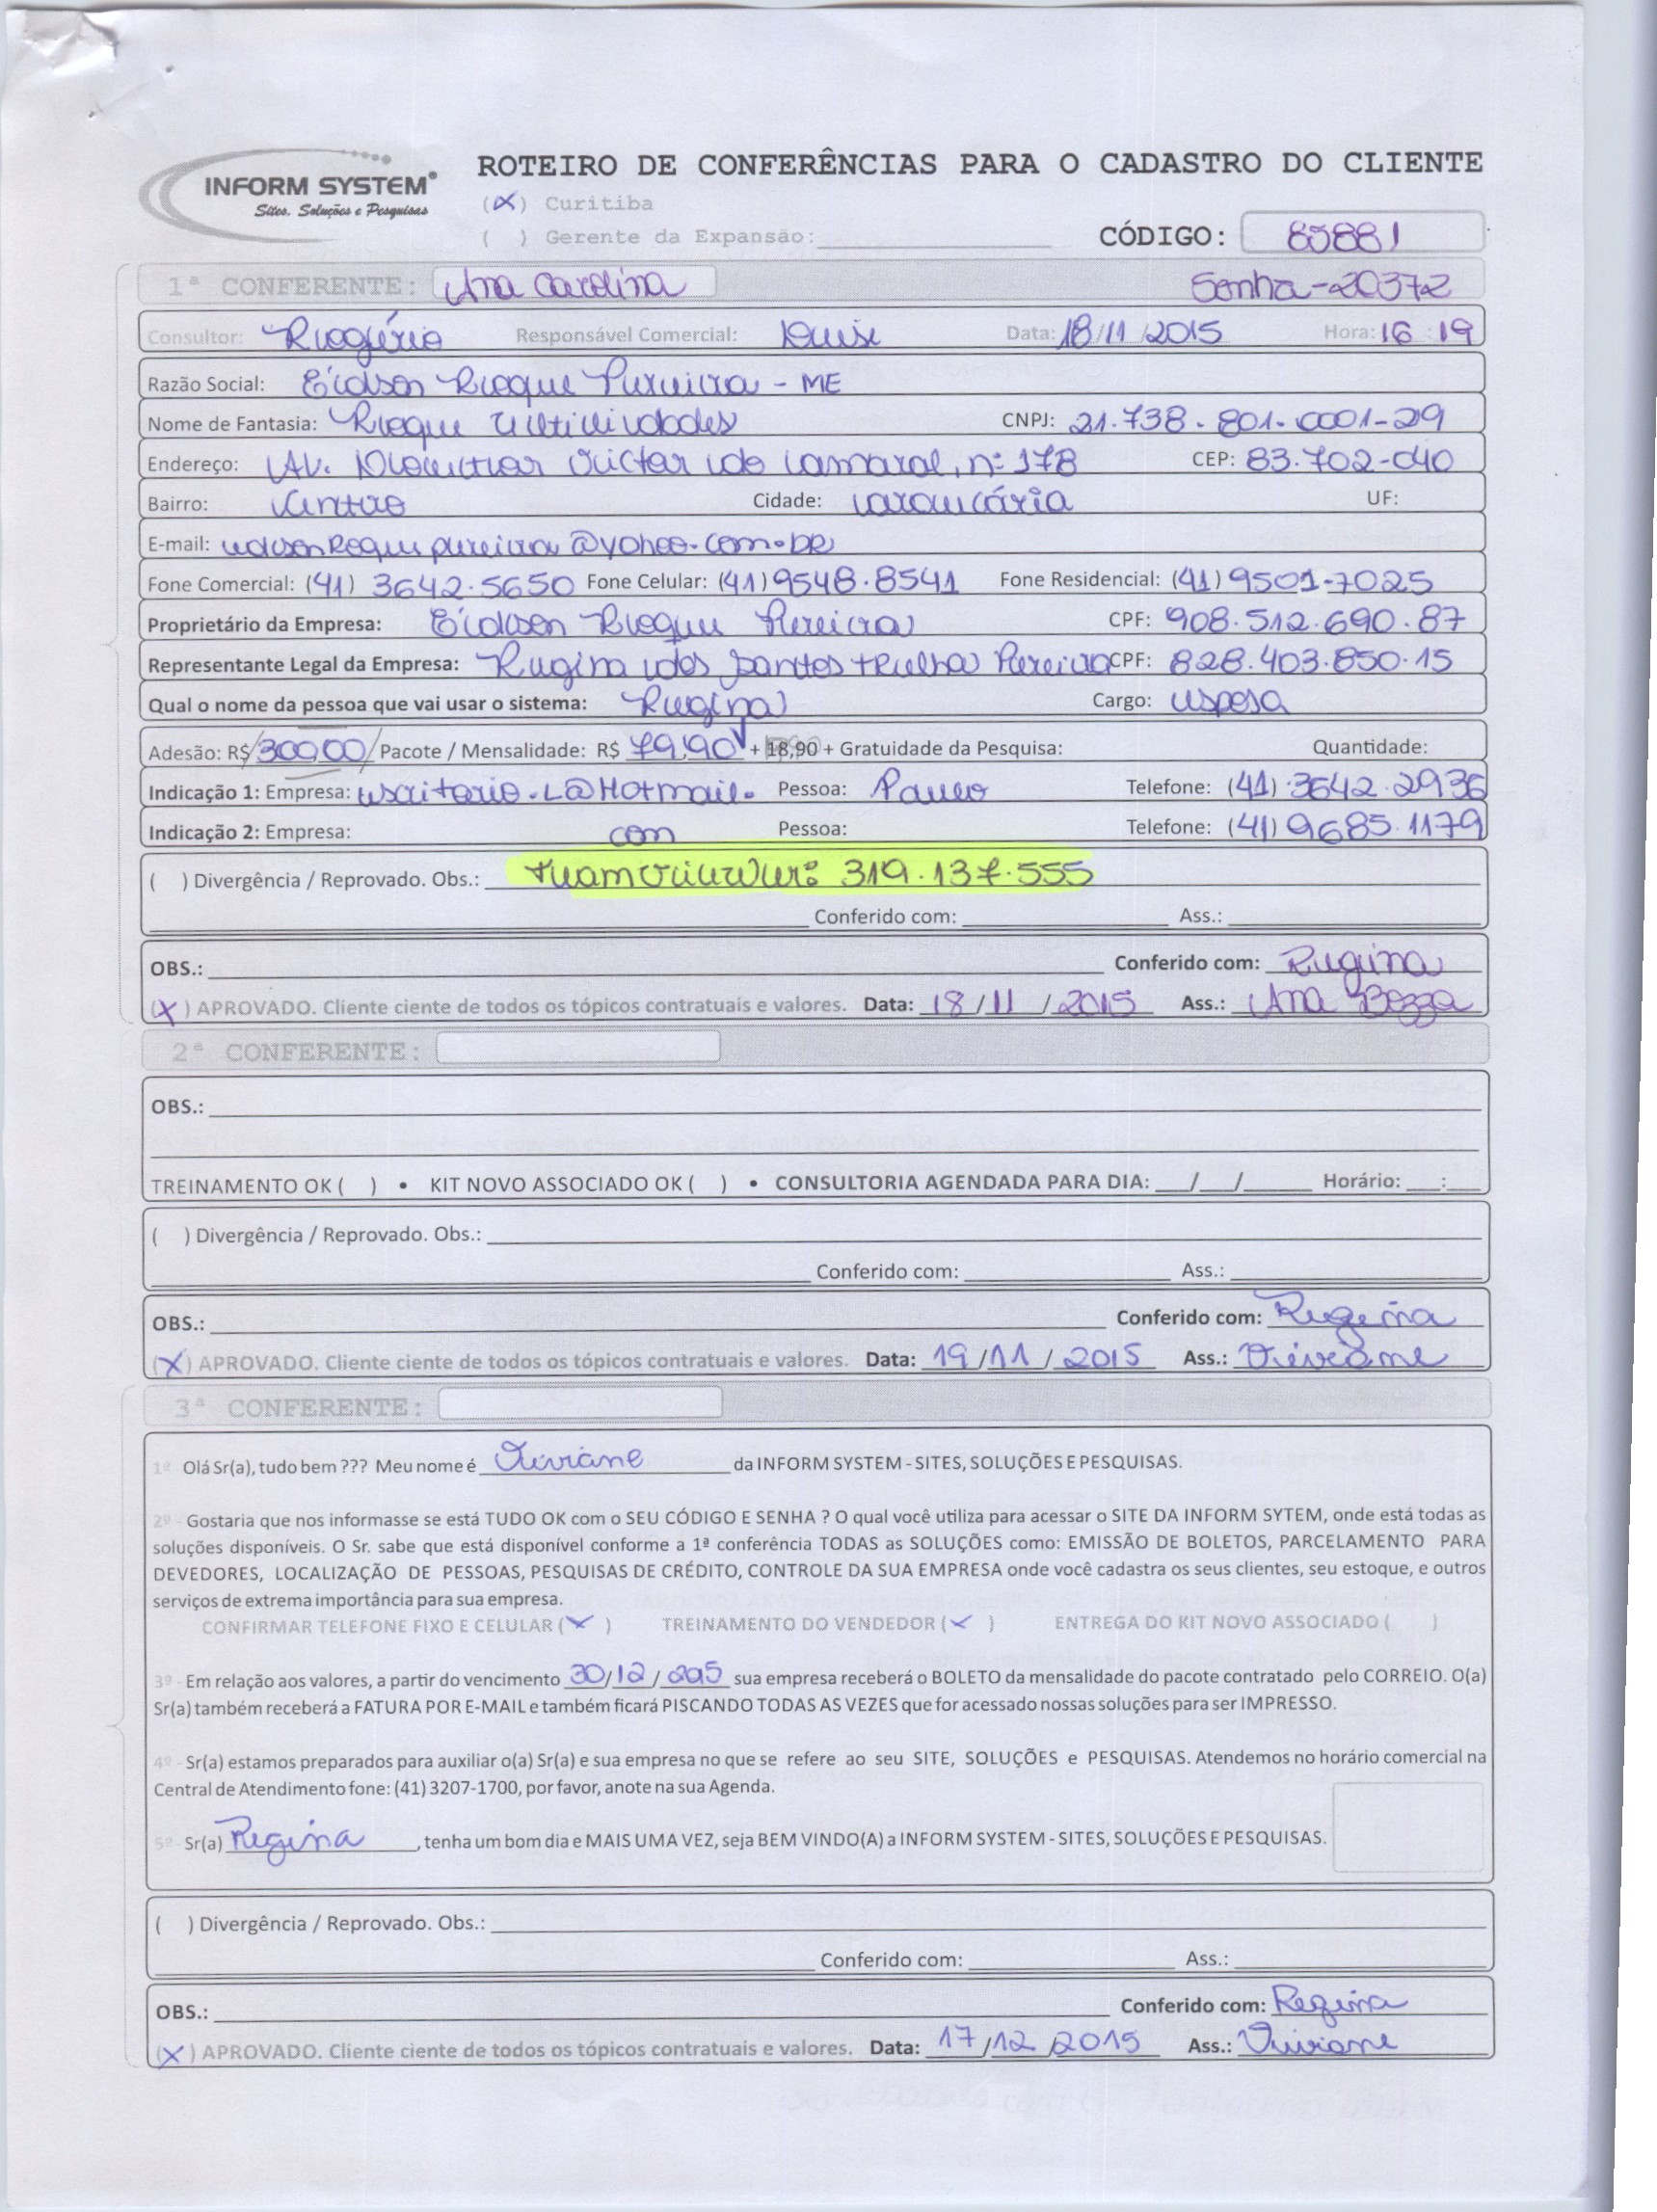 INFORM SYSTEM®
Sites, Soluções e Pesquisas
ROTEIRO DE CONFERÊNCIAS PARA O CADASTRO DO CLIENTE
(X) Curitiba
( ) Gerente da Expansão:
CÓDIGO: 85881
1ª CONFERENTE: Ana Carolina Senha-20372
Consultor: Rogério Responsável Comercial: Data: 18/11/2015 Hora: 16:19
Razão Social: Edson Roque Pereira - ME
Nome de Fantasia: Roque Utilidades CNPJ: 21.738.801.0001-29
Endereço: Av. Doutor Victor do Amaral, nº 178 CEP: 83.702-040
Bairro: Centro Cidade: Araucária UF:
E-mail: edsonRoquepereira@yahoo.com.br
Fone Comercial: (41) 3642.5650 Fone Celular: (41) 9548.8541 Fone Residencial: (41) 9501-7025
Proprietário da Empresa: Edson Roque Pereira CPF: 908.512.690.87
Representante Legal da Empresa: Regina dos Santos Pereira CPF: 828.403.850.15
Qual o nome da pessoa que vai usar o sistema: Regina Cargo: esposa
Adesão: R$ 300,00 Pacote / Mensalidade: R$ 79,90 + 18,90 + Gratuidade da Pesquisa: Quantidade:
Indicação 1: Empresa: escritorio.L@Hotmail. Pessoa: Paulo Telefone: (41) 3642.2936
Indicação 2: Empresa: com Pessoa: Telefone: (41) 9685.1179
( ) Divergência / Reprovado. Obs.: teamviewer: 319.137.555
Conferido com: Ass.:
OBS.: Conferido com: Regina
(X) APROVADO. Cliente ciente de todos os tópicos contratuais e valores. Data: 18/11/2015 Ass.: Ana Bezza
2ª CONFERENTE:
OBS.:
TREINAMENTO OK ( ) • KIT NOVO ASSOCIADO OK ( ) • CONSULTORIA AGENDADA PARA DIA: __/__/__ Horário: __:__
( ) Divergência / Reprovado. Obs.:
Conferido com: Ass.:
OBS.: Conferido com: Regina
(X) APROVADO. Cliente ciente de todos os tópicos contratuais e valores. Data: 19/11/2015 Ass.: Viviane
3ª CONFERENTE:
1º Olá Sr(a), tudo bem ??? Meu nome é Viviane da INFORM SYSTEM - SITES, SOLUÇÕES E PESQUISAS.
2º - Gostaria que nos informasse se está TUDO OK com o SEU CÓDIGO E SENHA ? O qual você utiliza para acessar o SITE DA INFORM SYTEM, onde está todas as
soluções disponíveis. O Sr. sabe que está disponível conforme a 1ª conferência TODAS as SOLUÇÕES como: EMISSÃO DE BOLETOS, PARCELAMENTO PARA
DEVEDORES, LOCALIZAÇÃO DE PESSOAS, PESQUISAS DE CRÉDITO, CONTROLE DA SUA EMPRESA onde você cadastra os seus clientes, seu estoque, e outros
serviços de extrema importância para sua empresa.
CONFIRMAR TELEFONE FIXO E CELULAR (✓) TREINAMENTO DO VENDEDOR (✓) ENTREGA DO KIT NOVO ASSOCIADO ( )
3º - Em relação aos valores, a partir do vencimento 30/12/2015 sua empresa receberá o BOLETO da mensalidade do pacote contratado pelo CORREIO. O(a)
Sr(a) também receberá a FATURA POR E-MAIL e também ficará PISCANDO TODAS AS VEZES que for acessado nossas soluções para ser IMPRESSO.
4º - Sr(a) estamos preparados para auxiliar o(a) Sr(a) e sua empresa no que se refere ao seu SITE, SOLUÇÕES e PESQUISAS. Atendemos no horário comercial na
Central de Atendimento fone: (41) 3207-1700, por favor, anote na sua Agenda.
5º - Sr(a) Regina, tenha um bom dia e MAIS UMA VEZ, seja BEM VINDO(A) a INFORM SYSTEM - SITES, SOLUÇÕES E PESQUISAS.
( ) Divergência / Reprovado. Obs.:
Conferido com: Ass.:
OBS.: Conferido com: Regina
(X) APROVADO. Cliente ciente de todos os tópicos contratuais e valores. Data: 17/12/2015 Ass.: Viviane